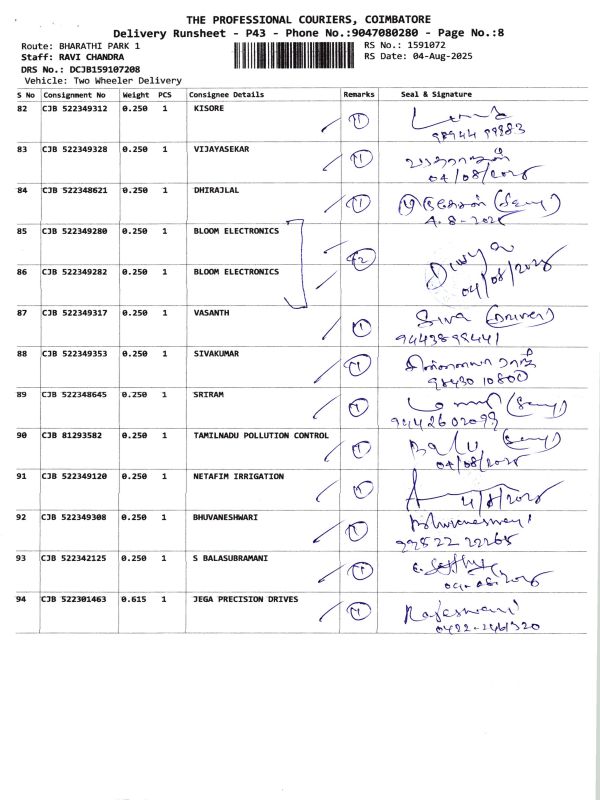 THE PROFESSIONAL COURIERS, COIMBATORE
Delivery Runsheet - P43 - Phone No.:9047080280 - Page No.:8
Route: BHARATHI PARK 1
RS No.: 1591072
Staff: RAVI CHANDRA
RS Date: 04-Aug-2025
DRS No.: DCJB159107208
Vehicle: Two Wheeler Delivery
S No Consignment No Weight PCS Consignee Details Remarks Seal & Signature
82 CJB 522349312 0.250 1 KISORE
83 CJB 522349328 0.250 1 VIJAYASEKAR
04/08/2025
84 CJB 522348621 0.250 1 DHIRAJLAL
4.8-2025
85 CJB 522349280 0.250 1 BLOOM ELECTRONICS
86 CJB 522349282 0.250 1 BLOOM ELECTRONICS
Divya
04/08/2025
87 CJB 522349317 0.250 1 VASANTH
Siva (Driver)
88 CJB 522349353 0.250 1 SIVAKUMAR
98430 10800
89 CJB 522348645 0.250 1 SRIRAM
90 CJB 81293582 0.250 1 TAMILNADU POLLUTION CONTROL
Balu
04/08/2025
91 CJB 522349120 0.250 1 NETAFIM IRRIGATION
4/8/2025
92 CJB 522349308 0.250 1 BHUVANESHWARI
Bhuvaneswari
93 CJB 522342125 0.250 1 S BALASUBRAMANI
04-08-2025
94 CJB 522301463 0.615 1 JEGA PRECISION DRIVES
Rajeswari